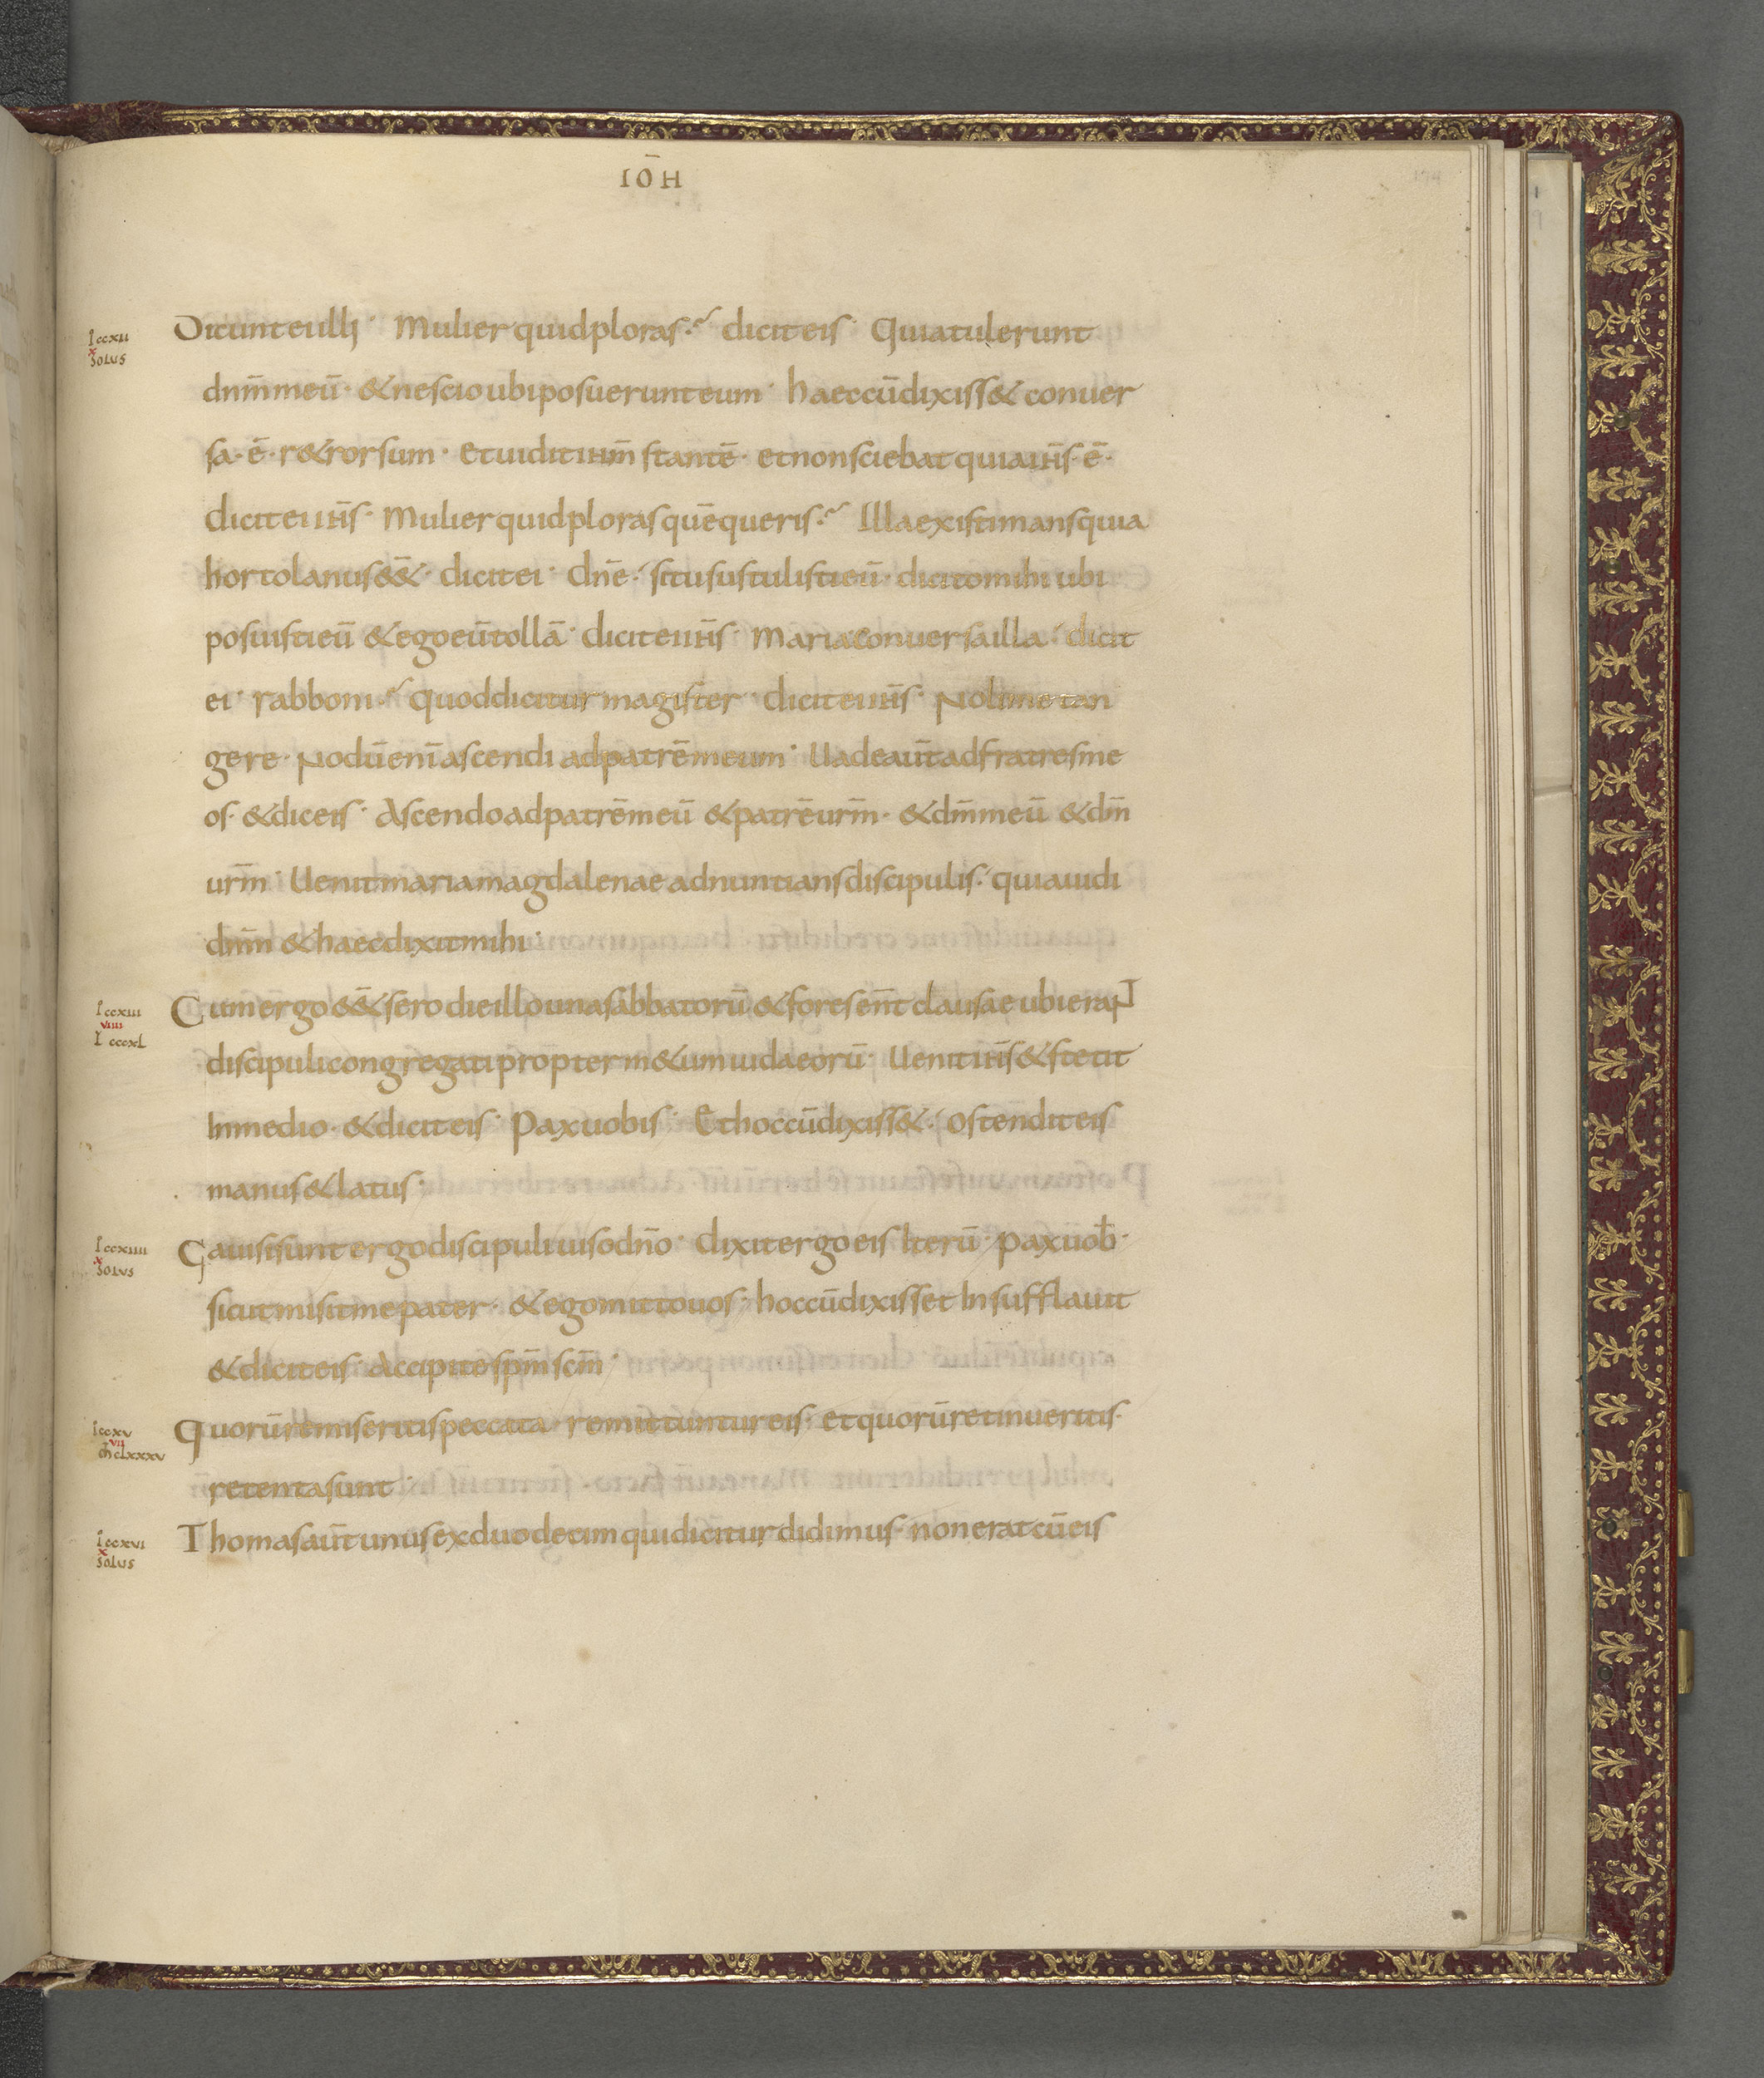 IŌH
Iccxii
x
solus
Dicunt ei illi· Mulier quid ploras· dicit eis· Quia tulerunt
dn̄m meū· & nescio ubi posuerunt eum· haec cū dixiss& conuer
sa· ē· r&rorsum· Et uidit ih̄m stantē· et non sciebat quia ih̄s· ē·
dicit ei ih̄s· Mulier quid ploras quē queris· Illa existimans quia
hortolanus e&· dicit ei· dn̄e· si tu sustulisti eū· dicito mihi ubi
posuisti eū & ego eū tollā· dicit ei ih̄s· Maria conuersa illa· dicit
ei· rabboni· quod dicitur magister· dicit ei ih̄s· Noli me tan
gere· Nodū enī ascendi ad patrē meum· Uade aūt ad fratres me
os· & dic eis· Ascendo ad patrē meū & patrē ur̄m· & dm̄ meū & dm̄
ur̄m· Uenit maria magdalenae adnuntians discipulis· quia uidi
dn̄m & haec dixit mihi·
Iccxiii
viiii
I cccxl
Cum ergo e&& sero die illo una sabbatorū & fores een̄t clausae ubi erant
discipuli congregati propter m&um iudaeorū· Uenit ih̄s & stetit
In medio· & dicit eis· Pax uobis· Et hoc cū dixiss&· ostendit eis
manus & latus·
Iccxiiii
x
solus
Gauisi sunt ergo discipuli uiso dn̄o· dixit ergo eis Iterū· pax uob̄·
sicut misit me pater· & ego mitto uos· hoc cū dixisset Insufflauit
& dicit eis· Accipite sp̄m sc̄m·
Iccxv
vii
m̄ clxxxv
Quorū remiseritis peccata· remittuntur eis· et quorū retinueritis·
retenta sunt·
Iccxvi
x
solus
Thomas aūt unus ex duodecim qui dicitur didimus· non erat cū eis